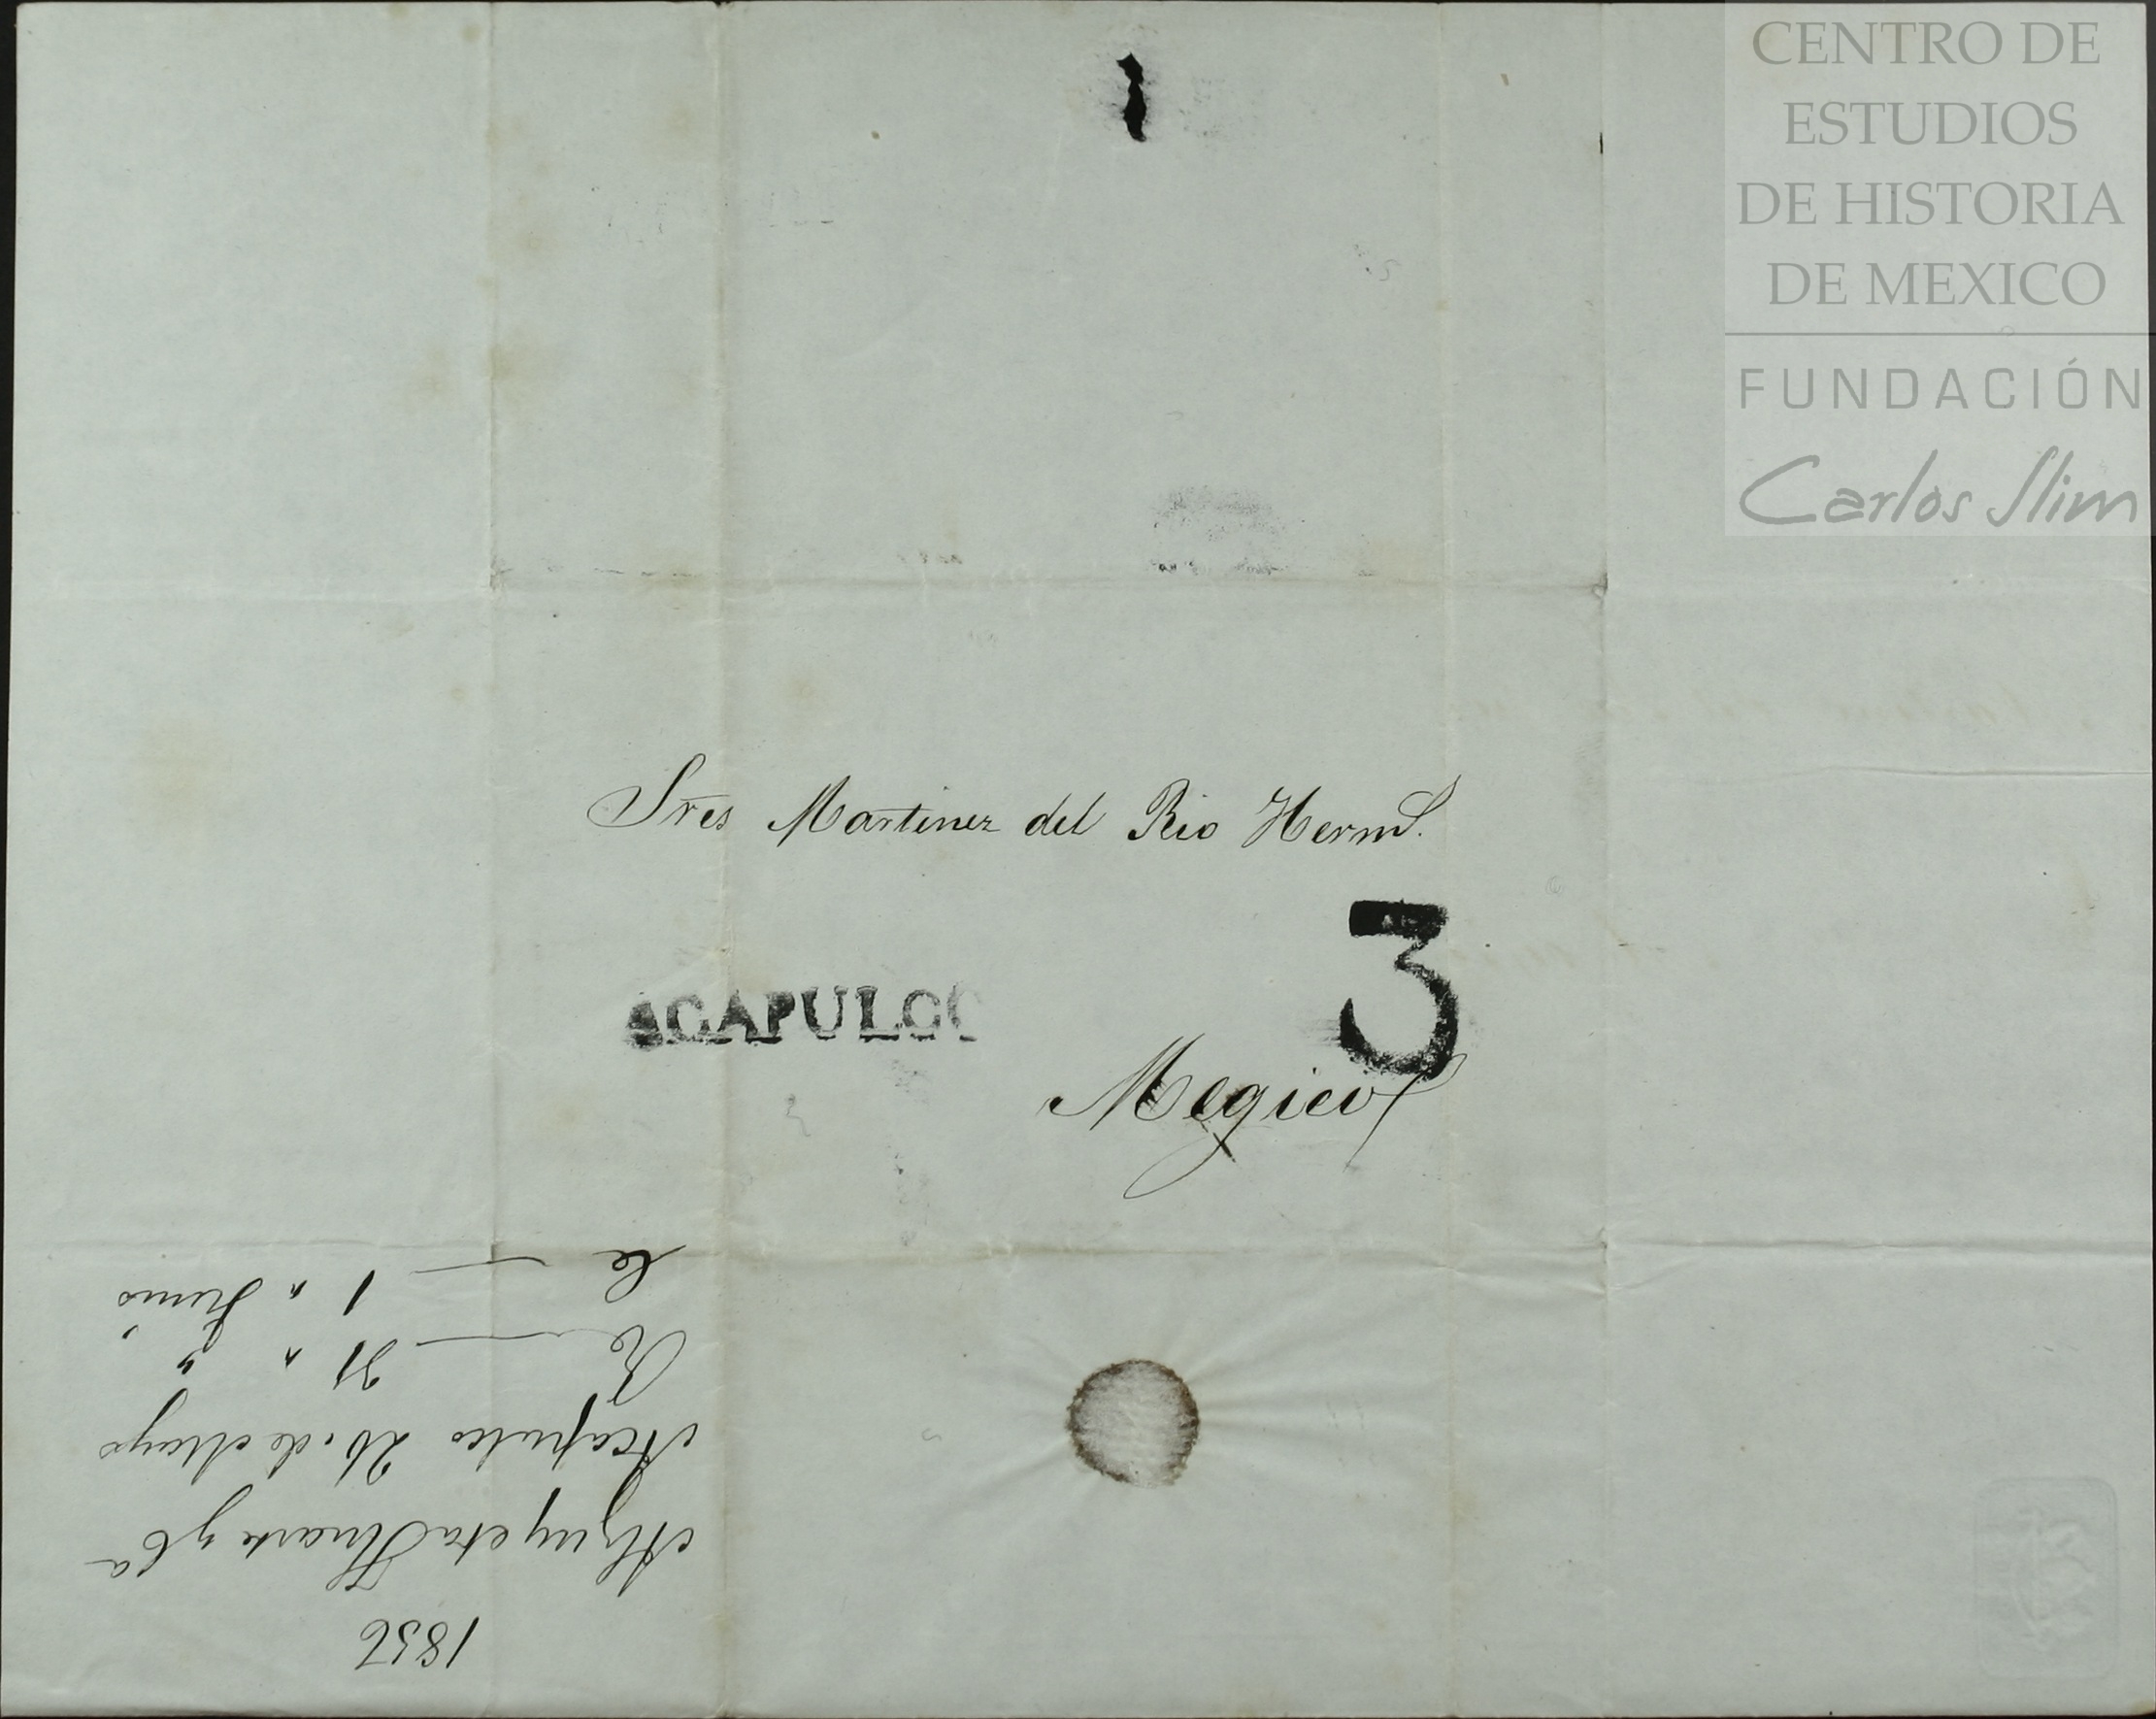 CENTRO DE
ESTUDIOS
DE HISTORIA
DE MEXICO
FUNDACIÓN
Carlos Slim
Sres Martinez del Rio Herms.
3
ACAPULCO
Megico
1856
Alzuyeta Huarte y Ca
Acapulco 26 de Mayo
R 31 " "
C 1 " Junio